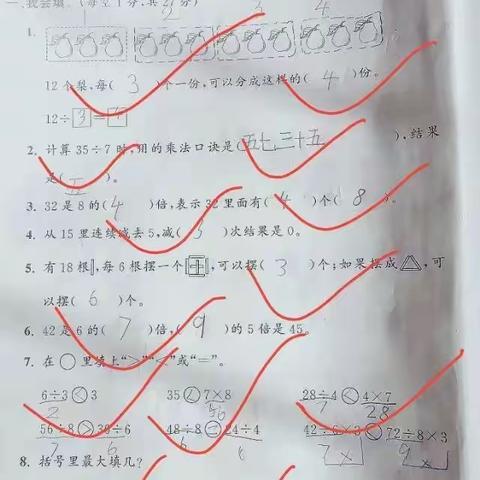 一、我会填。(每空1分,共27分)
1 2 3 4
1.
12个梨,每( 3 )个一份,可以分成这样的( 4 )份。
12÷3=4
2. 计算35÷7时,用的乘法口诀是(五七三十五),结果
是(五)。
3. 32是8的(4)倍,表示32里面有(4)个(8)。
4. 从15里连续减去5,减(3)次结果是0。
5. 有18根,每6根摆一个,可以摆(3)个;如果摆成,可
以摆(6)个。
6. 42是6的(7)倍,(9)的5倍是45。
7. 在○里填上“>”“<”或“=”。
6÷3<3 35<7×8 28÷7<4×7
2 56 4 28
56÷8>36÷6 48÷8=24÷4 42÷6×3<72÷8×3
7 6 6 6 7× 9×
8. 括号里最大填几?